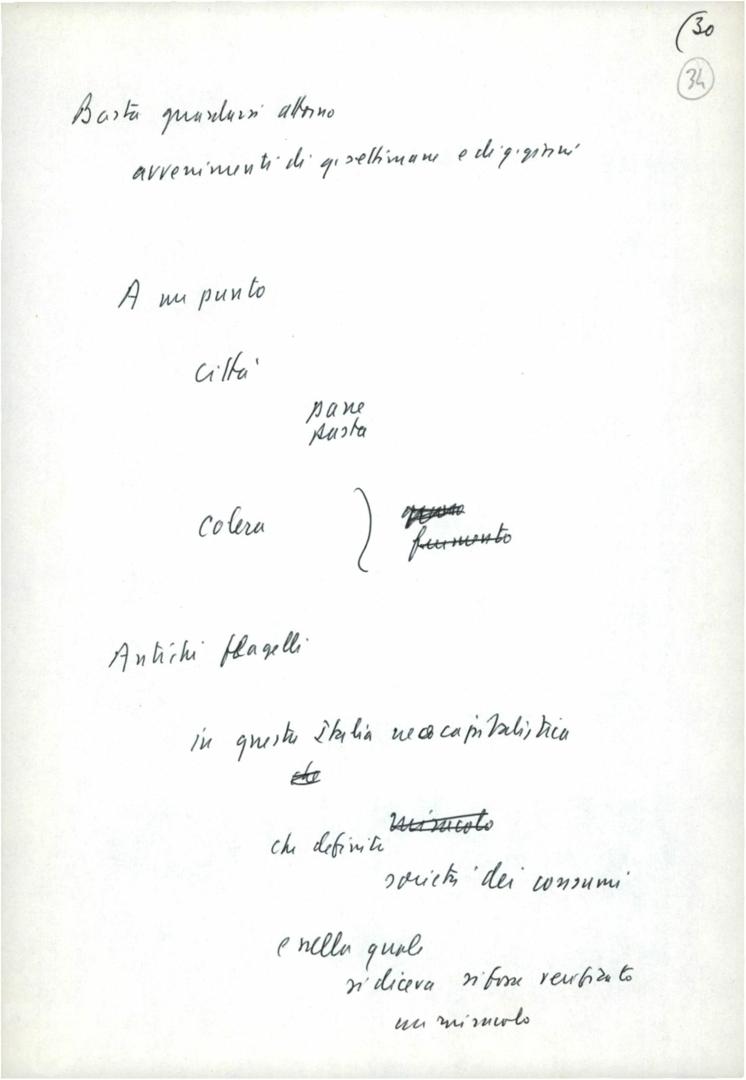 (30
34
Basta guardarsi attorno
avvenimenti di q. settimane e di q. giorni
A un punto
città
pane
pasta
colera
grano
frumento
Antichi flagelli
in questa Italia neocapitalistica
che
miracolo
che definite
società dei consumi
e nella quale
si diceva si fosse verificato
un miracolo